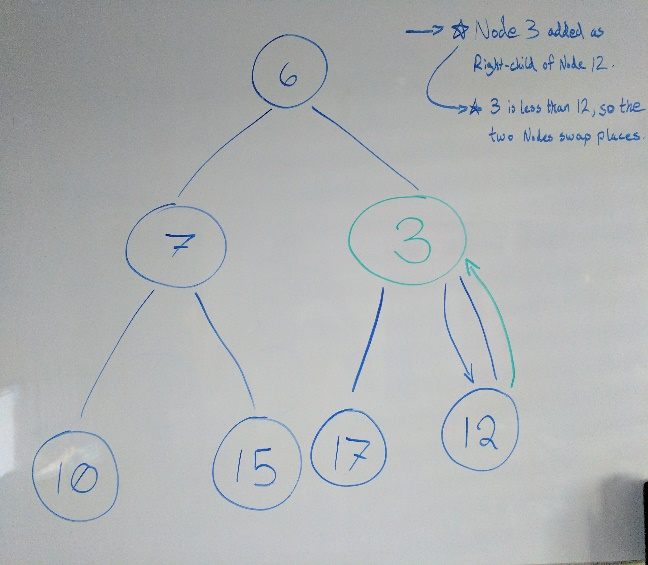 → ☆ Node 3 added as
Right-child of Node 12.
→ ☆ 3 is less than 12, so the
two Nodes swap places.
6
7
3
10
15
17
12